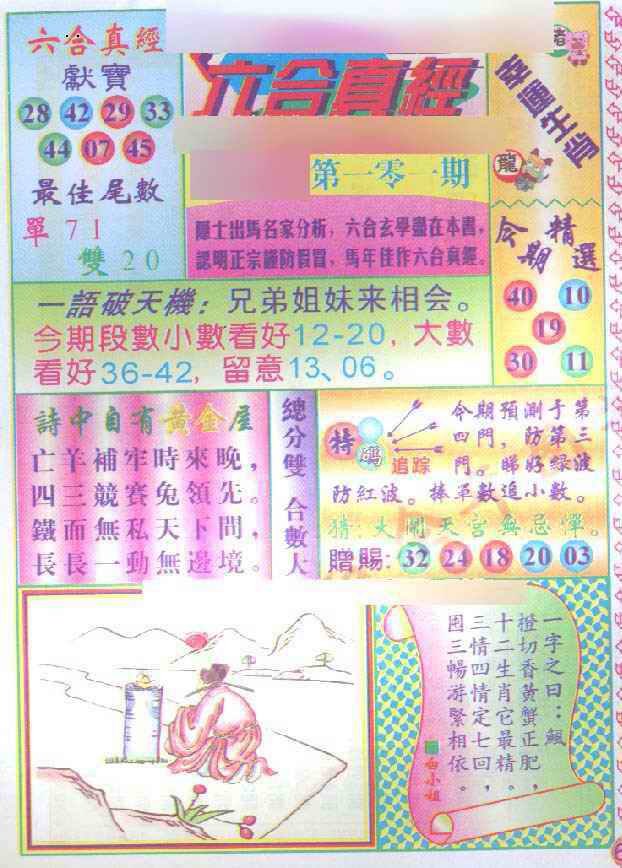 六合真經
獻寶
28 42 29 33
44 07 45
最佳尾數
單 7 1
雙 2 0
六合真經
第一零一期
隱士出馬名家分析，六合玄學盡在本書，
認明正宗謹防假冒，馬年佳作六合真經。
幸運生肖
龍
今期精選
40 10
19
30 11
一語破天機：兄弟姐妹来相会。
今期段數小數看好12-20，大數
看好36-42，留意13、06。
詩中自有黃金屋
亡羊補牢時來晚，
四三競賽兔領先。
鐵面無私天下問，
長長一動無邊境。
總分雙 合數大
特碼
追踪
今期預測于第
四門，防第三
門。睇好绿波
防紅波。捧單數追小數。
猜：大鬧天宮無忌憚。
贈賜：32 24 18 20 03
一字之曰：飆
橙切香黃蟹正肥，
十二生肖它最精，
三情四情定七回，
囲三暢游緊相依。
白小姐